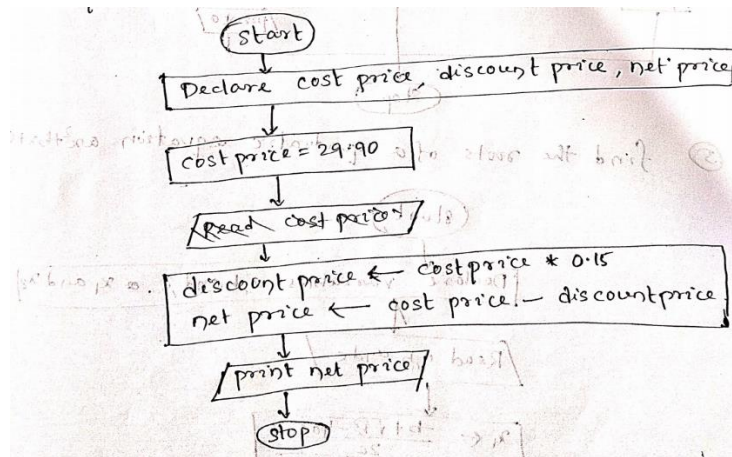 start
Declare cost price, discount price, net price
cost price = 29.90
Read cost price
discount price ← cost price * 0.15
net price ← cost price - discount price
print net price
stop